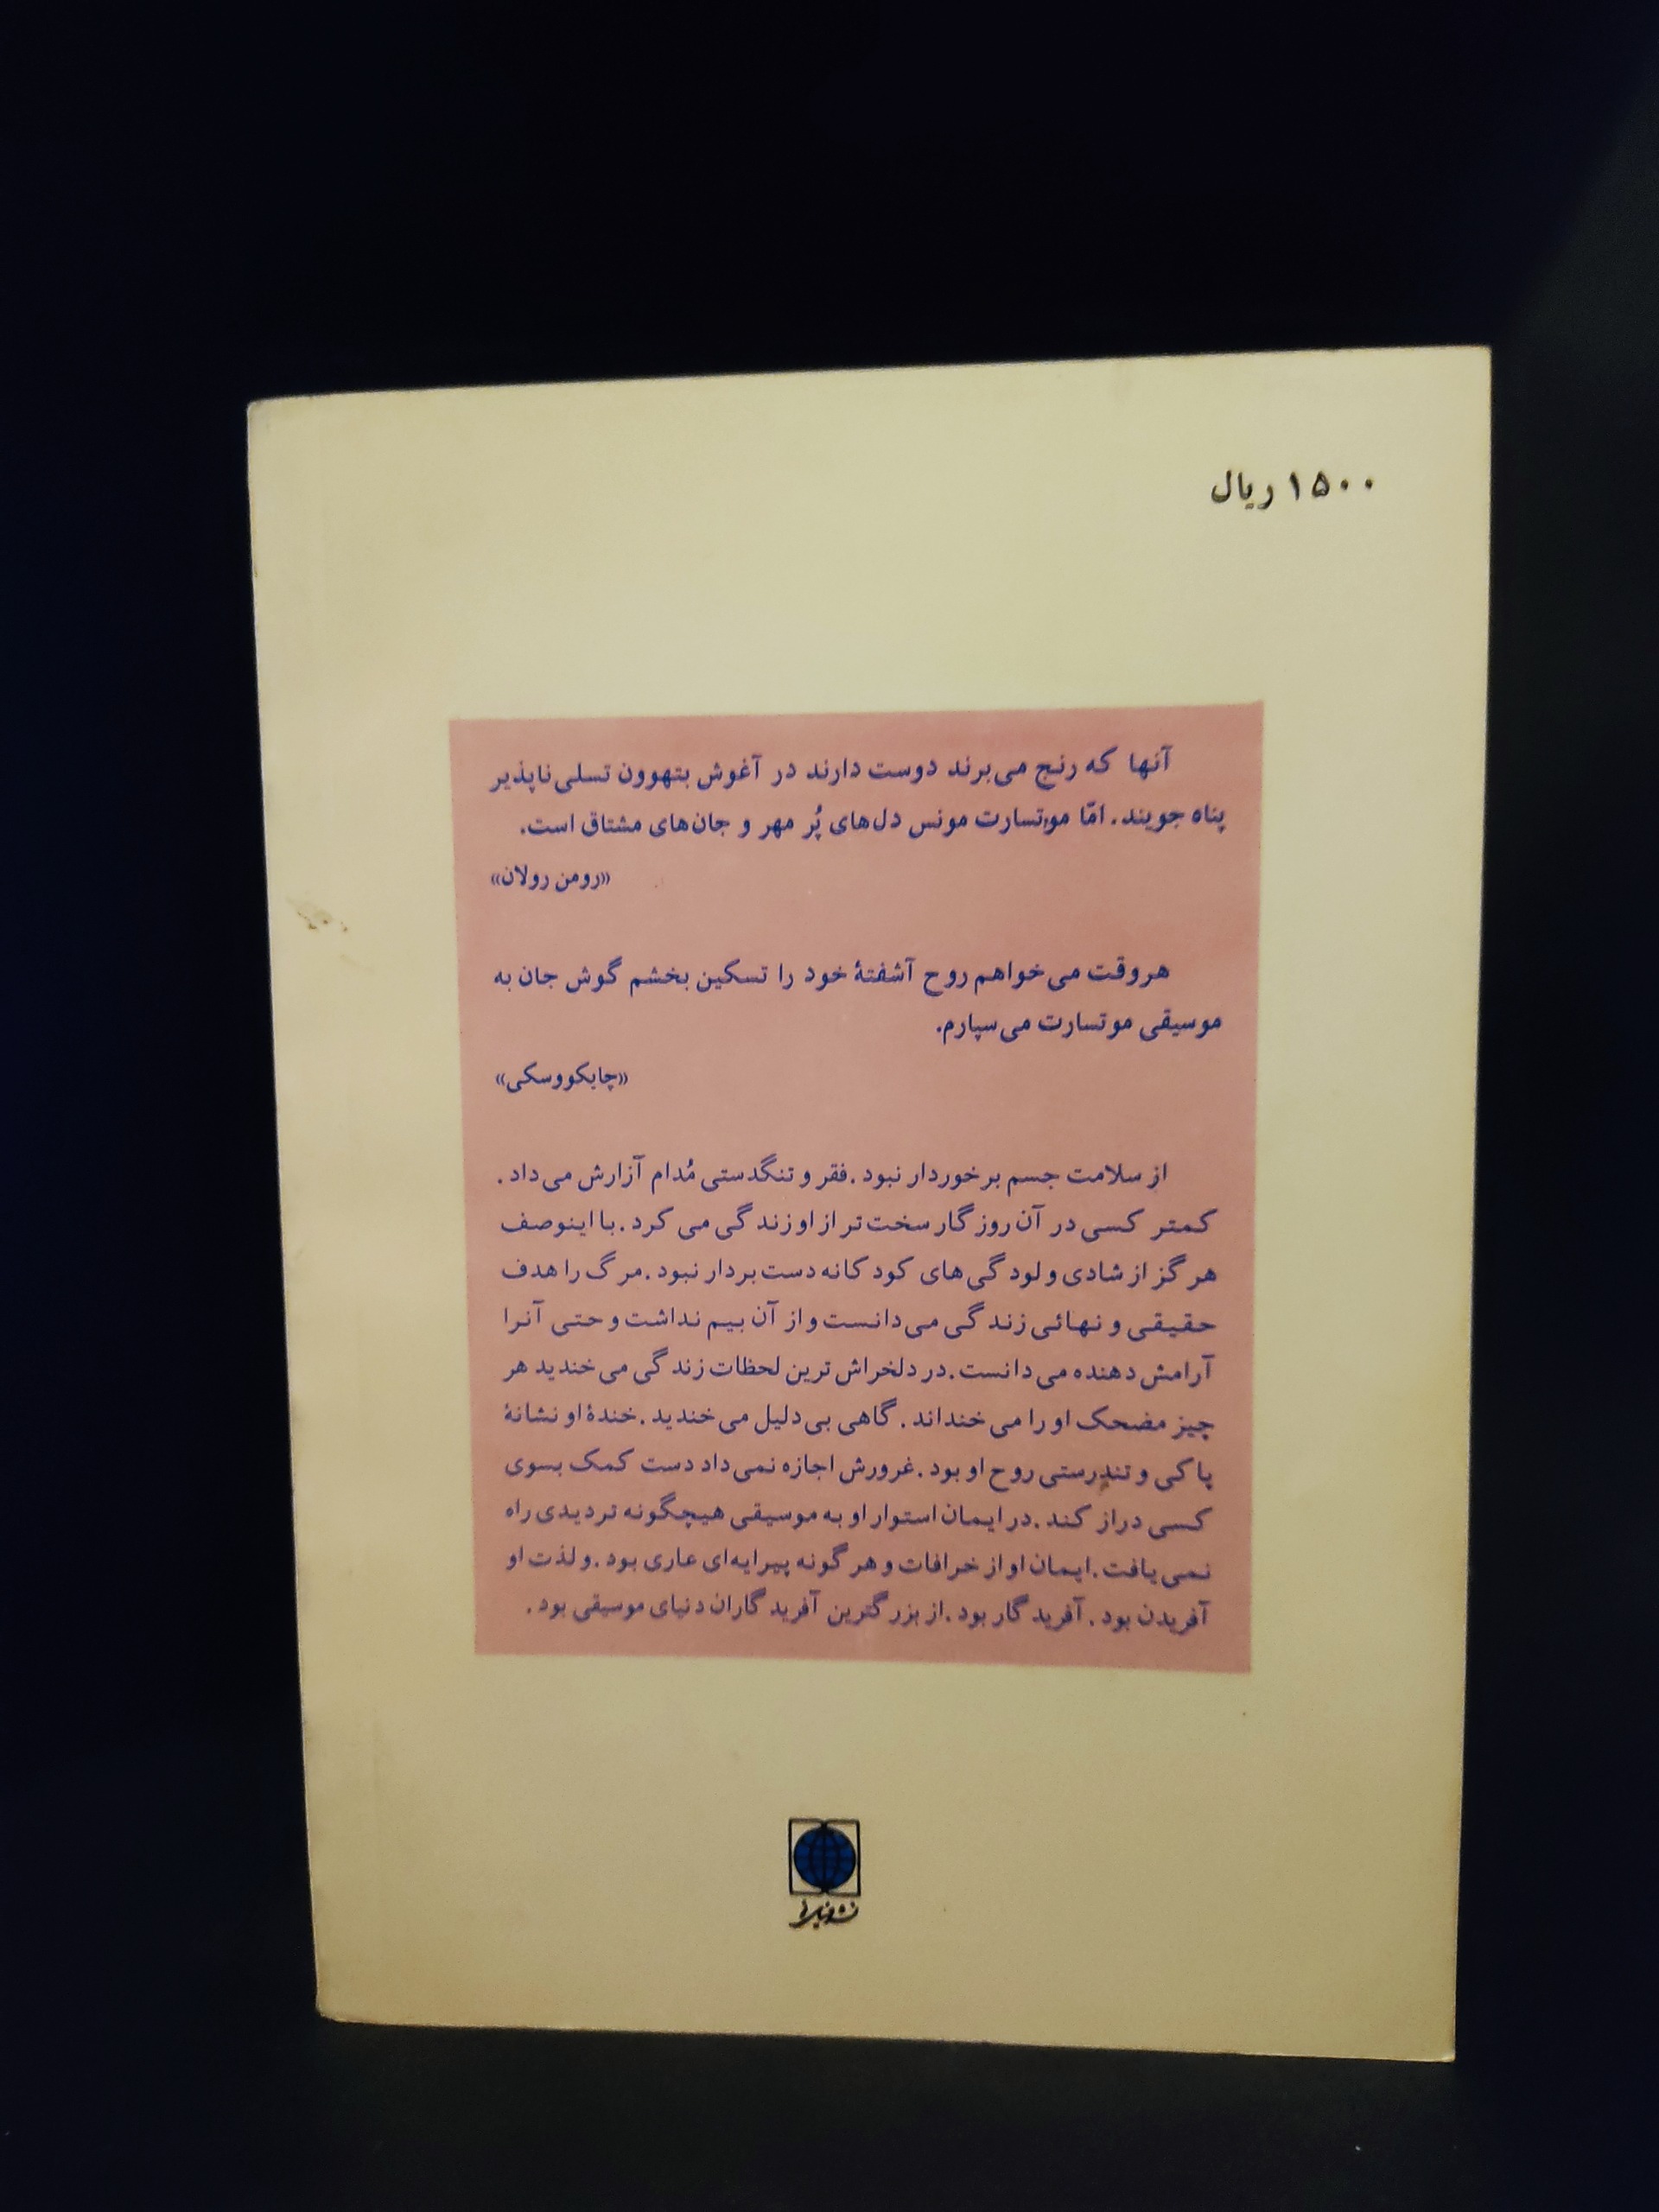 ۱۵۰۰ ریال
آنها که رنج می‌برند دوست دارند در آغوش بتهوون تسلی‌ناپذیر
پناه جویند. امّا موتسارت مونس دل‌های پُر مهر و جان‌های مشتاق است.
«رومن رولان»
هروقت می‌خواهم روح آشفتهٔ خود را تسکین بخشم گوش جان به
موسیقی موتسارت می‌سپارم.
«چایکووسکی»
از سلامت جسم برخوردار نبود. فقر و تنگدستی مُدام آزارش می‌داد.
کمتر کسی در آن روزگار سخت‌تر از او زندگی می‌کرد. با اینوصف
هرگز از شادی و لودگی‌های کودکانه دست‌بردار نبود. مرگ را هدف
حقیقی و نهائی زندگی می‌دانست و از آن بیم نداشت و حتی آنرا
آرامش دهنده می‌دانست. در دلخراش‌ترین لحظات زندگی می‌خندید هر
چیز مضحک او را می‌خنداند. گاهی بی‌دلیل می‌خندید. خندهٔ او نشانهٔ
پاکی و تندرستی روح او بود. غرورش اجازه نمی‌داد دست کمک بسوی
کسی دراز کند. در ایمان استوار او به موسیقی هیچگونه تردیدی راه
نمی‌یافت. ایمان او از خرافات و هرگونه پیرایه‌ای عاری بود. و لذت او
آفریدن بود. آفریدگار بود. از بزرگترین آفریدگاران دنیای موسیقی بود.